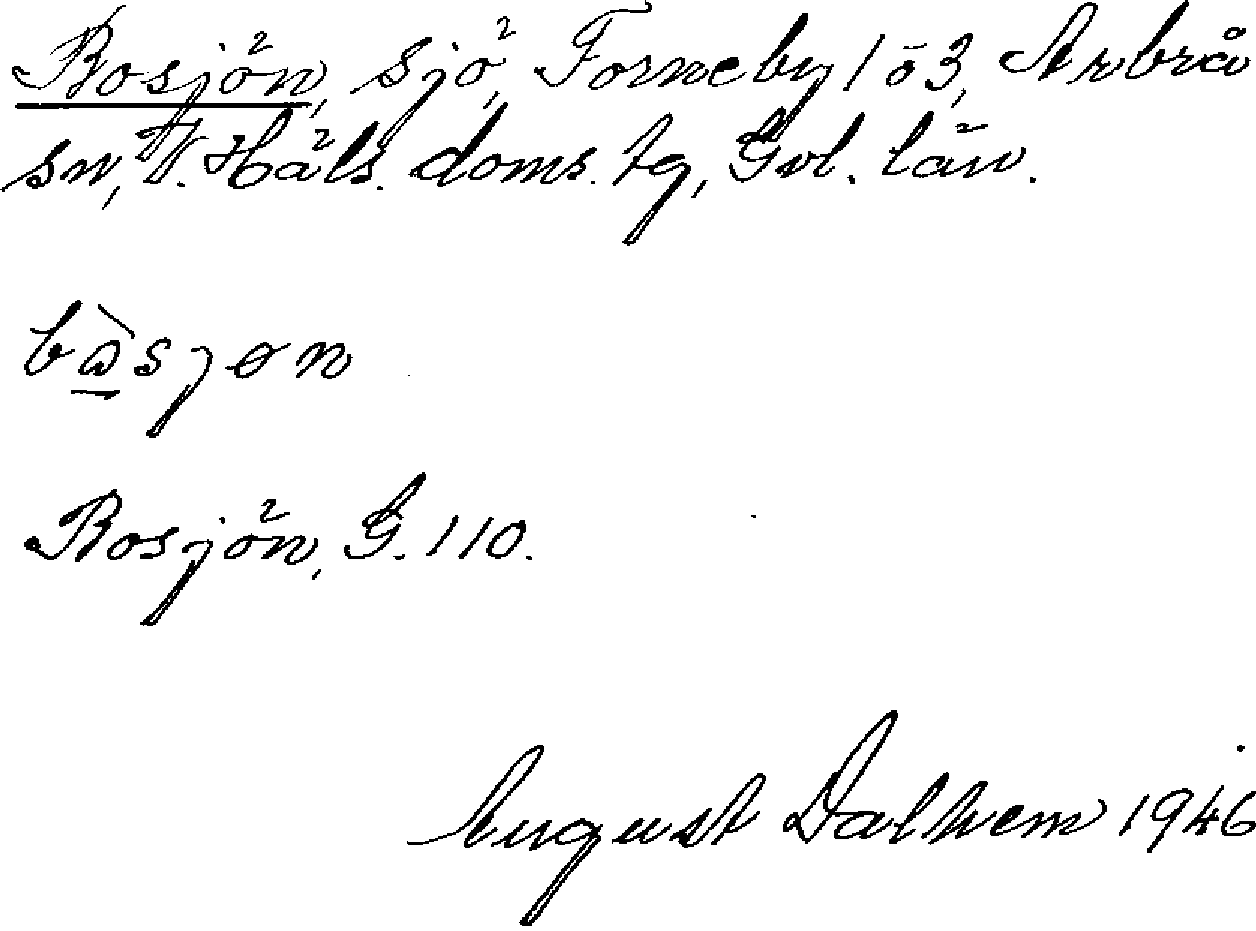 Bosjön, sjö, Forneby 1 o 3, Arbrå
sn, V. Häls. doms. tg, Gvl. län.
bὼsjon
Bosjön, G. 110.
August Dalhem 1946